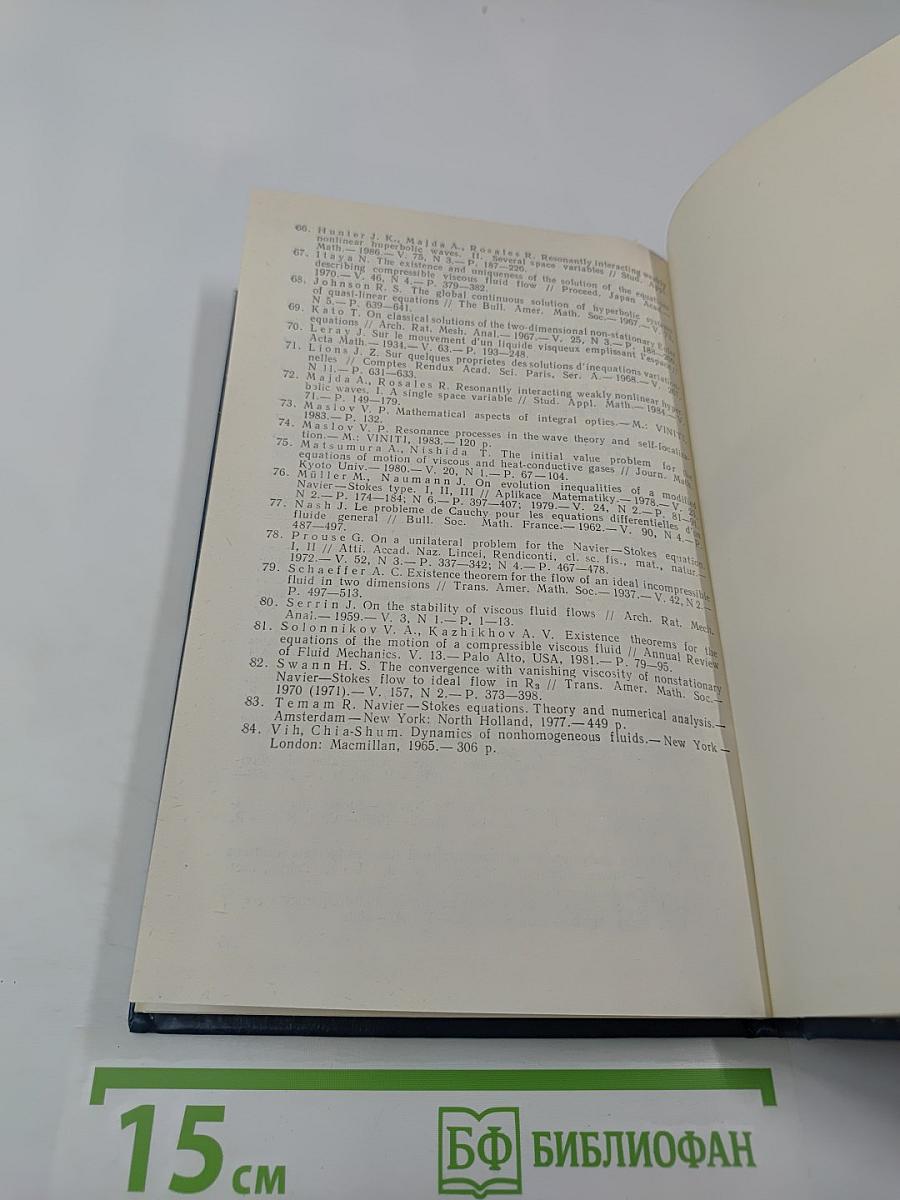 66. Hunter J. K., Majda A., Rosales R. Resonantly interacting weakly
nonlinear huperbolic waves. II. Several space variables // Stud. Appl.
Math.— 1986.— V. 75, N 3.— P. 187—226.
67. Itaya N. The existence and uniqueness of the solution of the equations
describing compressible viscous fluid flow // Proceed. Japan Acad.—
1970.— V. 46, N 4.— P. 379—382.
68. Johnson R. S. The global continuous solution of hyperbolic systems
of quasi-linear equations // The Bull. Amer. Math. Soc.— 1967.— V. 73,
N 5.— P. 639—641.
69. Kato T. On classical solutions of the two-dimensional non-stationary Euler
equations // Arch. Rat. Mesh. Anal.— 1967.— V. 25, N 3.— P. 188—
70. Leray J. Sur le mouvement d'un liquide visqueux emplissant l'espace //
Acta Math.— 1934.— V. 63.— P. 193—248.
71. Lions J. Z. Sur quelques proprietes des solutions d'inequations variation-
nelles // Comptes Rendux Acad. Sci. Paris, Ser. A.— 1968.— V. 267,
N 11.— P. 631—633.
72. Majda A., Rosales R. Resonantly interacting weakly nonlinear hyper-
bolic waves. I. A single space variable // Stud. Appl. Math.— 1984.— V.
71.— P. 149—179.
73. Maslov V. P. Mathematical aspects of integral optics.— M.: VINITI,
1983.— P. 132.
74. Maslov V. P. Resonance processes in the wave theory and self-focaliza-
tion.— M.: VINITI, 1983.— 120 p.
75. Matsumura A., Nishida T. The initial value problem for the
equations of motion of viscous and heat-conductive gases // Journ. Math.
Kyoto Univ.— 1980.— V. 20, N 1.— P. 67—104.
76. Müller M., Naumann J. On evolution inequalities of a modified
Navier—Stokes type. I, II, III // Aplikace Matematiky.— 1978.— V. 23,
N 2.— P. 174—184; N 6.— P. 397—407; 1979.— V. 24, N 2.— P. 81—91.
77. Nash J. Le probleme de Cauchy pour les equations differentielles d'un
fluide general // Bull. Soc. Math. France.— 1962.— V. 90, N 4.— P.
487—497.
78. Prouse G. On a unilateral problem for the Navier—Stokes equation.
I, II // Atti. Accad. Naz. Lincei, Rendiconti, cl. sc. fis., mat., natur.—
1972.— V. 52, N 3.— P. 337—342; N 4.— P. 467—478.
79. Schaeffer A. C. Existence theorem for the flow of an ideal incompressible
fluid in two dimensions // Trans. Amer. Math. Soc.— 1937.— V. 42, N 2.—
P. 497—513.
80. Serrin J. On the stability of viscous fluid flows // Arch. Rat. Mech.
Anal.— 1959.— V. 3, N 1.— P. 1—13.
81. Solonnikov V. A., Kazhikhov A. V. Existence theorems for the
equations of the motion of a compressible viscous fluid // Annual Review
of Fluid Mechanics. V. 13.— Palo Alto, USA, 1981.— P. 79—95.
82. Swann H. S. The convergence with vanishing viscosity of nonstationary
Navier—Stokes flow to ideal flow in R₃ // Trans. Amer. Math. Soc.—
1970 (1971).— V. 157, N 2.— P. 373—398.
83. Temam R. Navier—Stokes equations. Theory and numerical analysis.—
Amsterdam — New York: North Holland, 1977.— 449 p.
84. Vih, Chia-Shum. Dynamics of nonhomogeneous fluids.— New York —
London: Macmillan, 1965.— 306 p.
15 см
БФ БИБЛИОФАН